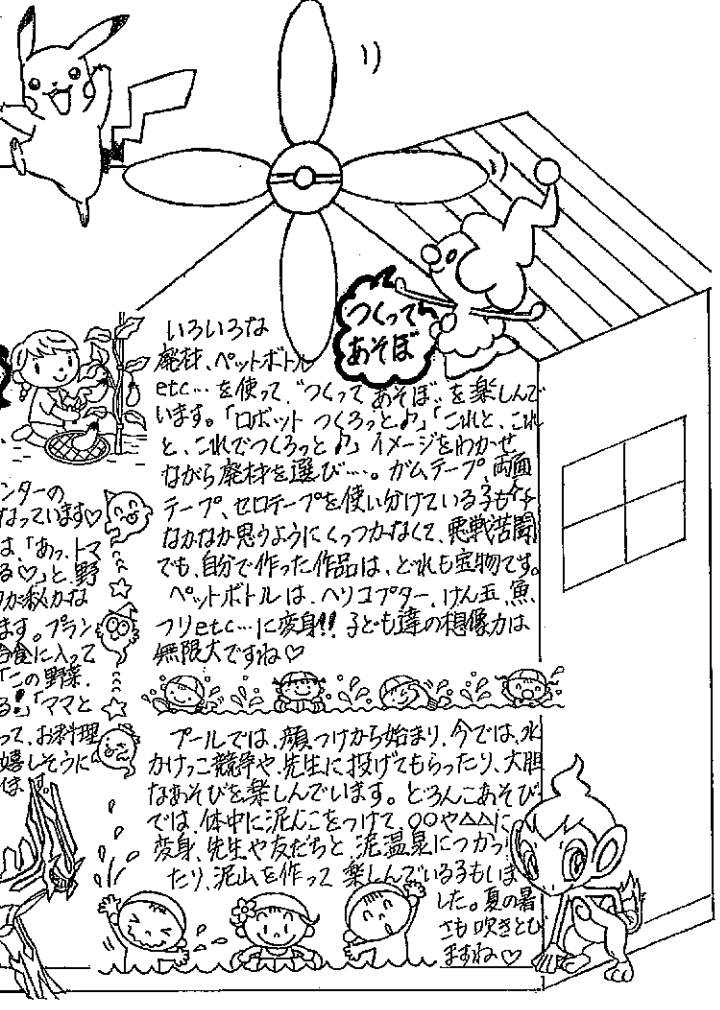 つくって
あそぼ
いろいろな
廃材、ペットボトル
etc…を使って、"つくって あそぼ"を楽しんで
います。「ロボット つくろっと♪」「これと、これ
と、これでつくろっと♪」イメージをわかせ
ながら廃材を選び…。ガムテープ、両面
テープ、セロテープを使い分けている子も
なかなか思うようにくっつかなくて、悪戦苦闘
でも、自分で作った作品は、どれも宝物です。
ペットボトルは、ヘリコプター、けん玉、魚
フリetc…に変身!! 子ども達の想像力は
無限大ですね♡
プールでは、顔つけから始まり、今では、水
かけっこ競争や、先生に投げてもらったり、大胆
なあそびを楽しんでいます。どろんこあそび
では、体中に泥んこをつけて、〇〇や△△に
変身、先生や友だちと、泥温泉につかっ
たり、泥山を作って楽しんでいる子もいま
した。夏の暑
さも吹きとび
ますね♡
ンターの
なっています♡
は、「あっ、トマ
る♡」と、野
が秋かな
ます。プラン
給食に入って
「この野菜、
る!」「ママと
って、お料理
嬉しそうに